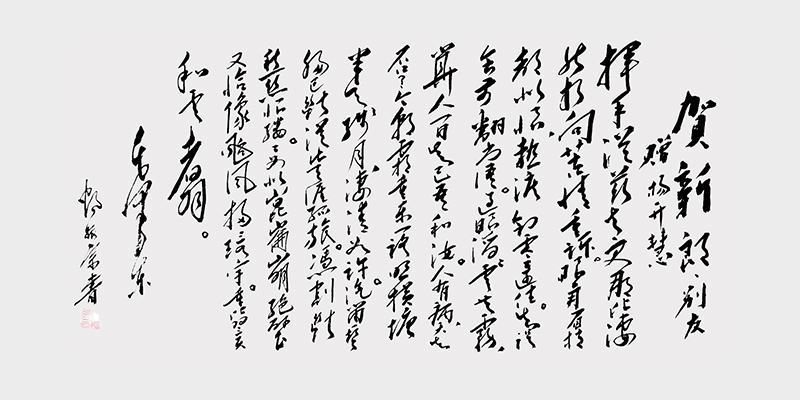 賀新郎 别友
赠杨开慧
挥手从兹去更那堪凄
然相向苦情重诉。眼角眉梢
都似恨热泪欲零还住。知误
会前翻书语。过眼滔滔云共雾
算人间知己吾和汝。人有病天知
否今朝霜重东门路照横塘
半天残月凄清如许汽笛一声
肠已断从此天涯孤旅。凭割断
愁丝恨缕。要似崑崙崩绝壁
又恰像颱风扫寰宇。重比翼
和云翥。
毛泽东